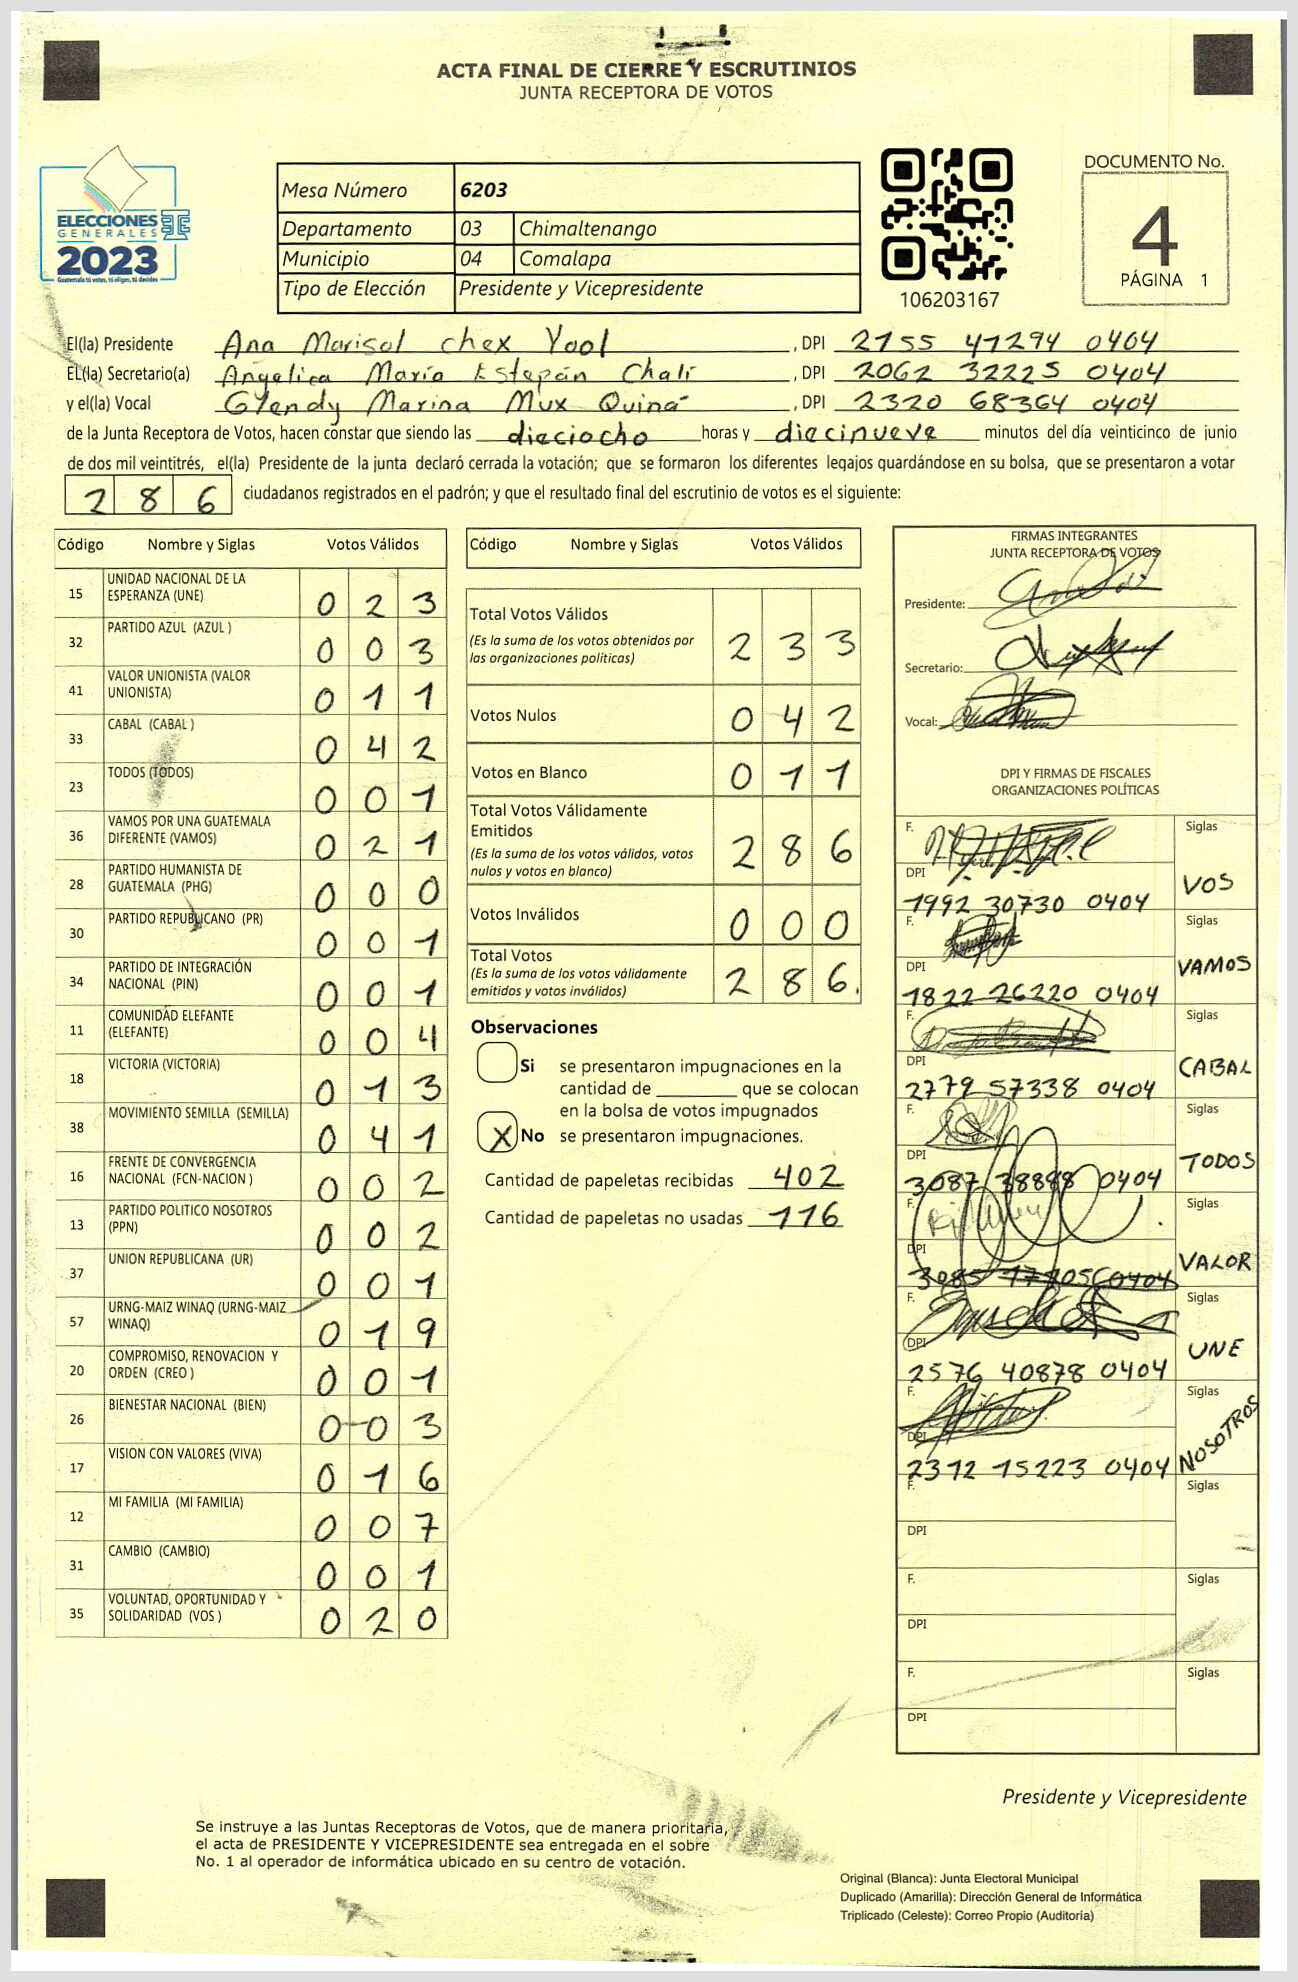 ACTA FINAL DE CIERRE Y ESCRUTINIOS
JUNTA RECEPTORA DE VOTOS
ELECCIONES
GENERALES
2023
Guatemala tú votas, tú eliges, tú decides
Mesa Número 6203
Departamento 03 Chimaltenango
Municipio 04 Comalapa
Tipo de Elección Presidente y Vicepresidente
106203167
DOCUMENTO No.
4
PÁGINA 1
El(la) Presidente Ana Marisol chex Yool , DPI 2755 41294 0404
EL(la) Secretario(a) Angelica María Estepán Chalí , DPI 2062 32225 0404
y el(la) Vocal Glendy Marina Mux Quiná , DPI 2320 68364 0404
de la Junta Receptora de Votos, hacen constar que siendo las dieciocho horas y diecinueve minutos del día veinticinco de junio
de dos mil veintitrés, el(la) Presidente de la junta declaró cerrada la votación; que se formaron los diferentes legajos quardándose en su bolsa, que se presentaron a votar
286 ciudadanos registrados en el padrón; y que el resultado final del escrutinio de votos es el siguiente:
Código Nombre y Siglas Votos Válidos
15 UNIDAD NACIONAL DE LA ESPERANZA (UNE) 0 2 3
32 PARTIDO AZUL (AZUL ) 0 0 3
41 VALOR UNIONISTA (VALOR UNIONISTA) 0 1 1
33 CABAL (CABAL ) 0 4 2
23 TODOS (TODOS) 0 0 1
36 VAMOS POR UNA GUATEMALA DIFERENTE (VAMOS) 0 2 1
28 PARTIDO HUMANISTA DE GUATEMALA (PHG) 0 0 0
30 PARTIDO REPUBLICANO (PR) 0 0 1
34 PARTIDO DE INTEGRACIÓN NACIONAL (PIN) 0 0 1
11 COMUNIDAD ELEFANTE (ELEFANTE) 0 0 4
18 VICTORIA (VICTORIA) 0 1 3
38 MOVIMIENTO SEMILLA (SEMILLA) 0 4 1
16 FRENTE DE CONVERGENCIA NACIONAL (FCN-NACION ) 0 0 2
13 PARTIDO POLITICO NOSOTROS (PPN) 0 0 2
37 UNION REPUBLICANA (UR) 0 0 1
57 URNG-MAIZ WINAQ (URNG-MAIZ WINAQ) 0 1 9
20 COMPROMISO, RENOVACION Y ORDEN (CREO ) 0 0 1
26 BIENESTAR NACIONAL (BIEN) 0 0 3
17 VISION CON VALORES (VIVA) 0 1 6
12 MI FAMILIA (MI FAMILIA) 0 0 7
31 CAMBIO (CAMBIO) 0 0 1
35 VOLUNTAD, OPORTUNIDAD Y SOLIDARIDAD (VOS ) 0 2 0
Código Nombre y Siglas Votos Válidos
Total Votos Válidos 2 3 3
(Es la suma de los votos obtenidos por
las organizaciones políticas)
Votos Nulos 0 4 2
Votos en Blanco 0 1 1
Total Votos Válidamente
Emitidos 2 8 6
(Es la suma de los votos válidos, votos
nulos y votos en blanco)
Votos Inválidos 0 0 0
Total Votos 2 8 6.
(Es la suma de los votos válidamente
emitidos y votos inválidos)
Observaciones
Si se presentaron impugnaciones en la
cantidad de ________ que se colocan
en la bolsa de votos impugnados
X No se presentaron impugnaciones.
Cantidad de papeletas recibidas 402
Cantidad de papeletas no usadas 116
FIRMAS INTEGRANTES
JUNTA RECEPTORA DE VOTOS
Presidente:
Secretario:
Vocal:
DPI Y FIRMAS DE FISCALES
ORGANIZACIONES POLÍTICAS
F. Siglas
DPI 1992 30730 0404 VOS
F. Siglas
DPI 1822 26220 0404 VAMOS
F. Siglas
DPI 2779 57338 0404 CABAL
F. Siglas
DPI 3087 38888 0404 TODOS
F. Siglas
DPI VALOR
F. Siglas
DPI 2576 40878 0404 UNE
F. Siglas
DPI 2312 15223 0404 NOSOTROS
F. Siglas
DPI
F. Siglas
DPI
F. Siglas
DPI
Presidente y Vicepresidente
Se instruye a las Juntas Receptoras de Votos, que de manera prioritaria,
el acta de PRESIDENTE Y VICEPRESIDENTE sea entregada en el sobre
No. 1 al operador de informática ubicado en su centro de votación.
Original (Blanca): Junta Electoral Municipal
Duplicado (Amarilla): Dirección General de Informática
Triplicado (Celeste): Correo Propio (Auditoría)